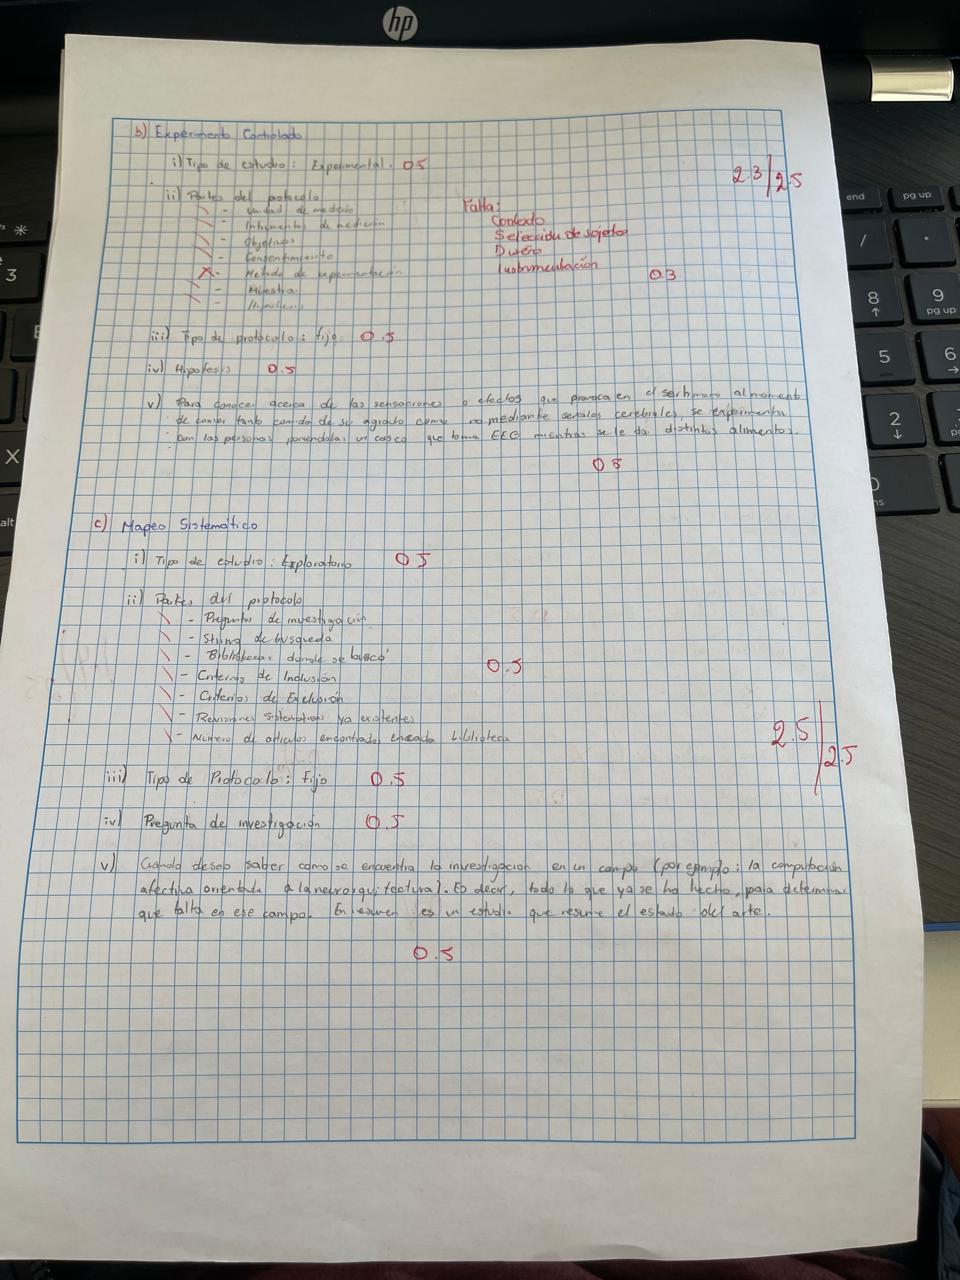 hp
b) Experimento Controlado
i) Tipo de estudio: Experimental. 0.5
2.3/2.5
ii) Partes del protocolo
- Unidad de medición
- Intrumentos de medición
- Objetivos
- Consentimiento
- Metodo de experimentación
- Muestra
- Hipotesis
Falta:
Contexto
Selección de sujetos
Diseño
Instrumentación
0.3
iii) Tipo de protocolo: fijo 0.5
iv) Hipotesis 0.5
v) Para conocer acerca de las sensaciones o efectos que provoca en el ser humano al momento
de comer tanto comida de su agrado como no mediante señales cerebrales, se experimenta
con las personas poniendolas un casco que toma EEG mientras se le da distintos alimentos.
0.5
c) Mapeo Sistemático
i) Tipo de estudio: Exploratorio 0.5
ii) Partes del protocolo
- Preguntas de investigación
- String de busqueda
- Bibliotecas donde se buscó
- Criterios de Inclusión
- Criterios de Exclusión
- Revisiones sistematicas ya existentes
- Número de articulos encontrados en cada biblioteca
0.5
2.5/2.5
iii) Tipo de Protocolo: fijo 0.5
iv) Pregunta de investigación 0.5
v) Cuando deseo saber como se encuentra la investigacion en un campo (por ejemplo: la computación
afectiva orientada a la neuroarquitectura). Es decir, todo lo que ya se ha hecho, para determinar
que falta en ese campo. En resumen es un estudio que resume el estado del arte.
0.5
end
pg up
3
X
alt
/
8
9
pg up
5
6
2